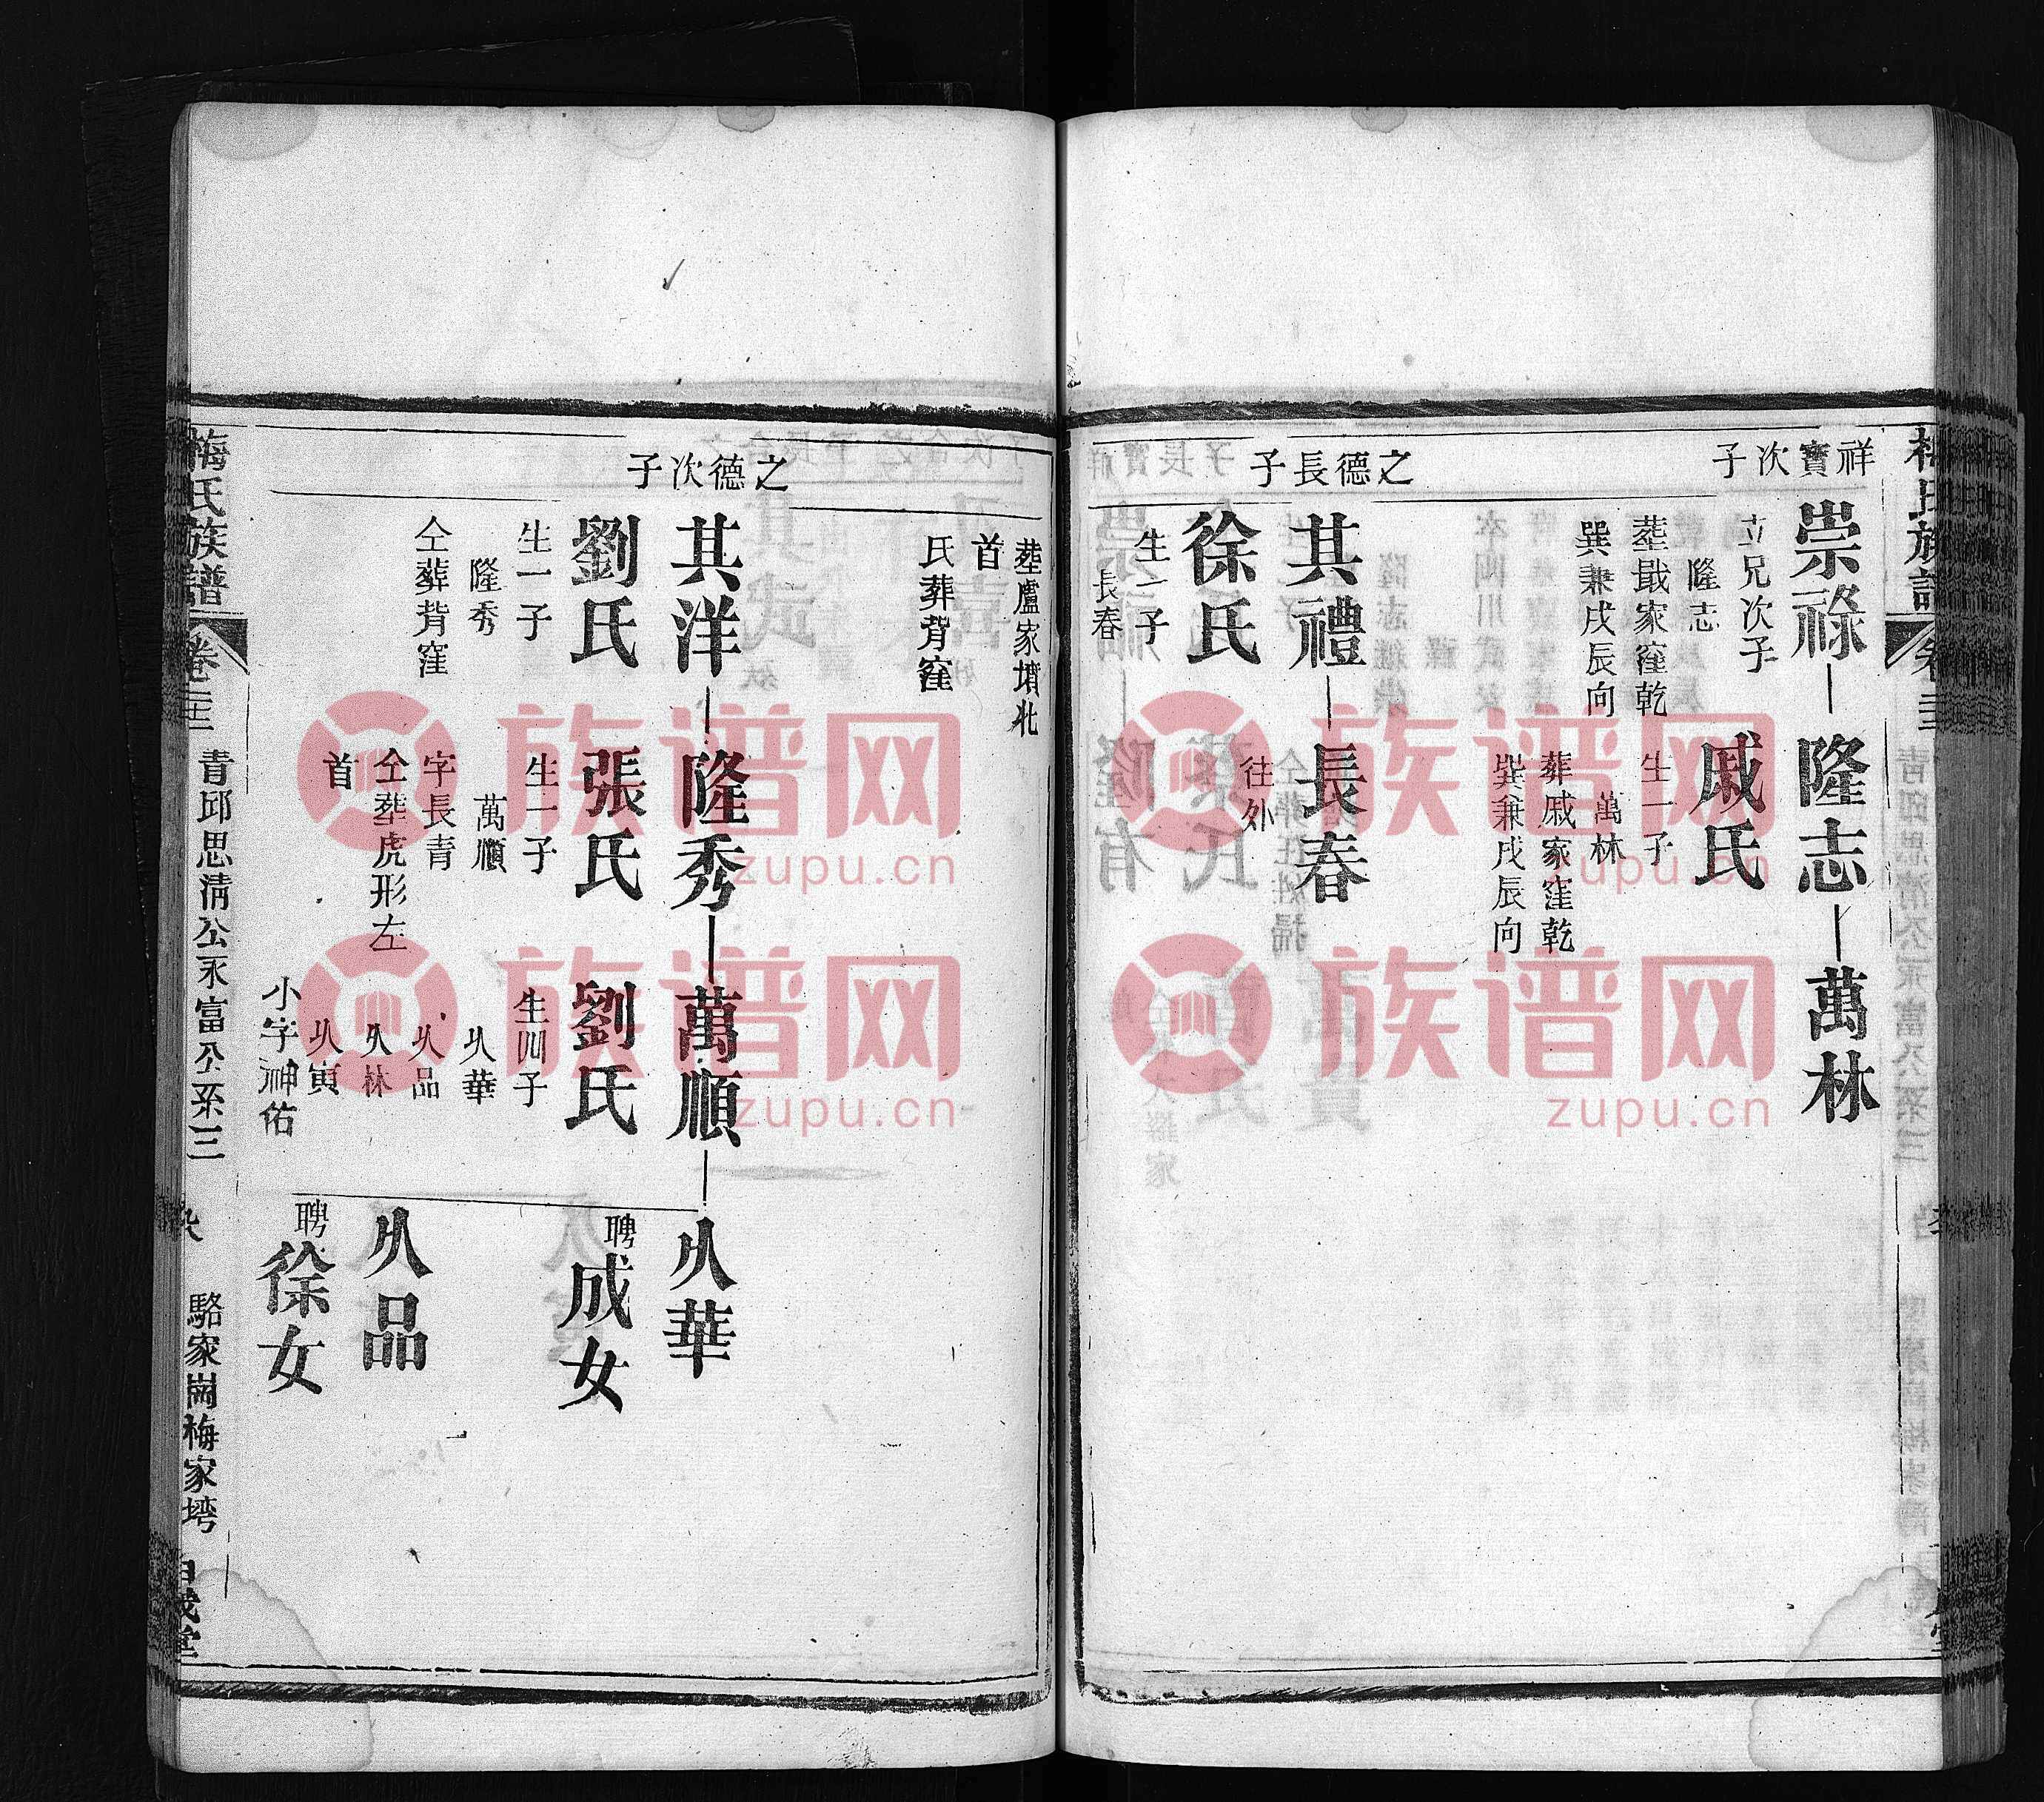 祥寶次子
崇祿—隆志—萬林
立兄次子
隆志
塟戢家窪乾
巽兼戌辰向
戚氏
生一子
萬林
葬戚家窪乾
巽兼戌辰向
之德長子
其禮—長春
徐氏
往外
生一子
長春
塟盧家墳北
首
氏葬背窪
之德次子
其洋—隆秀—萬順—夶華
劉氏
張氏
劉氏
聘成女
生一子
隆秀
仝葬背窪
生一子
萬順
字長青
仝塟虎形左
首
生四子
品
林
寅
小字神佑
品
聘徐女
梅氏族譜
卷
青邱思清公永富公系三
駱家崗梅家塆
族谱网
zupu.cn
族谱网
zupu.cn
族谱网
zupu.cn
族谱网
zupu.cn